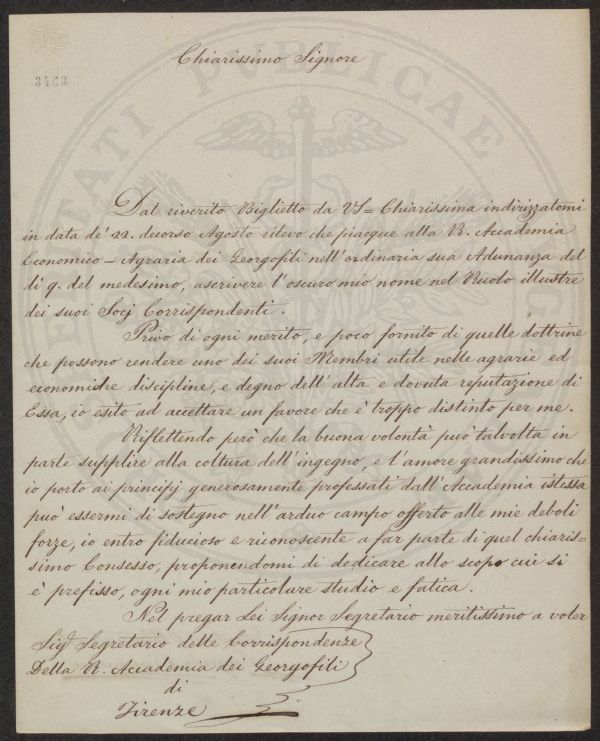 Chiarissimo Signore
3463
Dal riverito Biglietto da VS= Chiarissima indirizzatomi
in data de' 22. decorso Agosto rilevo che piacque alla R. Accademia
Economico-Agraria dei Georgofili nell'ordinaria sua Adunanza del
dì 9. del medesimo, ascrivere l'oscuro mio nome nel Ruolo illustre
dei suoi Socj Corrispondenti.
Privo di ogni merito, e poco fornito di quelle dottrine
che possono rendere uno dei suoi Membri utile nelle agrarie ed
economiche discipline, e degno dell'alta e dovuta reputazione di
Essa, io esito ad accettare un favore che è troppo distinto per me.
Riflettendo però che la buona volontà può talvolta in
parte supplire alla coltura dell'ingegno, e l'amore grandissimo che
io porto ai principj generosamente professati dall'Accademia istessa
può essermi di sostegno nell'arduo campo offerto alle mie deboli
forze, io entro fiducioso e riconoscente a far parte di quel chiaris=
simo Consesso, proponendomi di dedicare allo scopo cui si
è prefisso, ogni mio particolare studio e fatica.
Nel pregar Lei Signor Segretario meritissimo a voler
Sigr Segretario delle Corrispondenze
Della R. Accademia dei Georgofili
di
Firenze